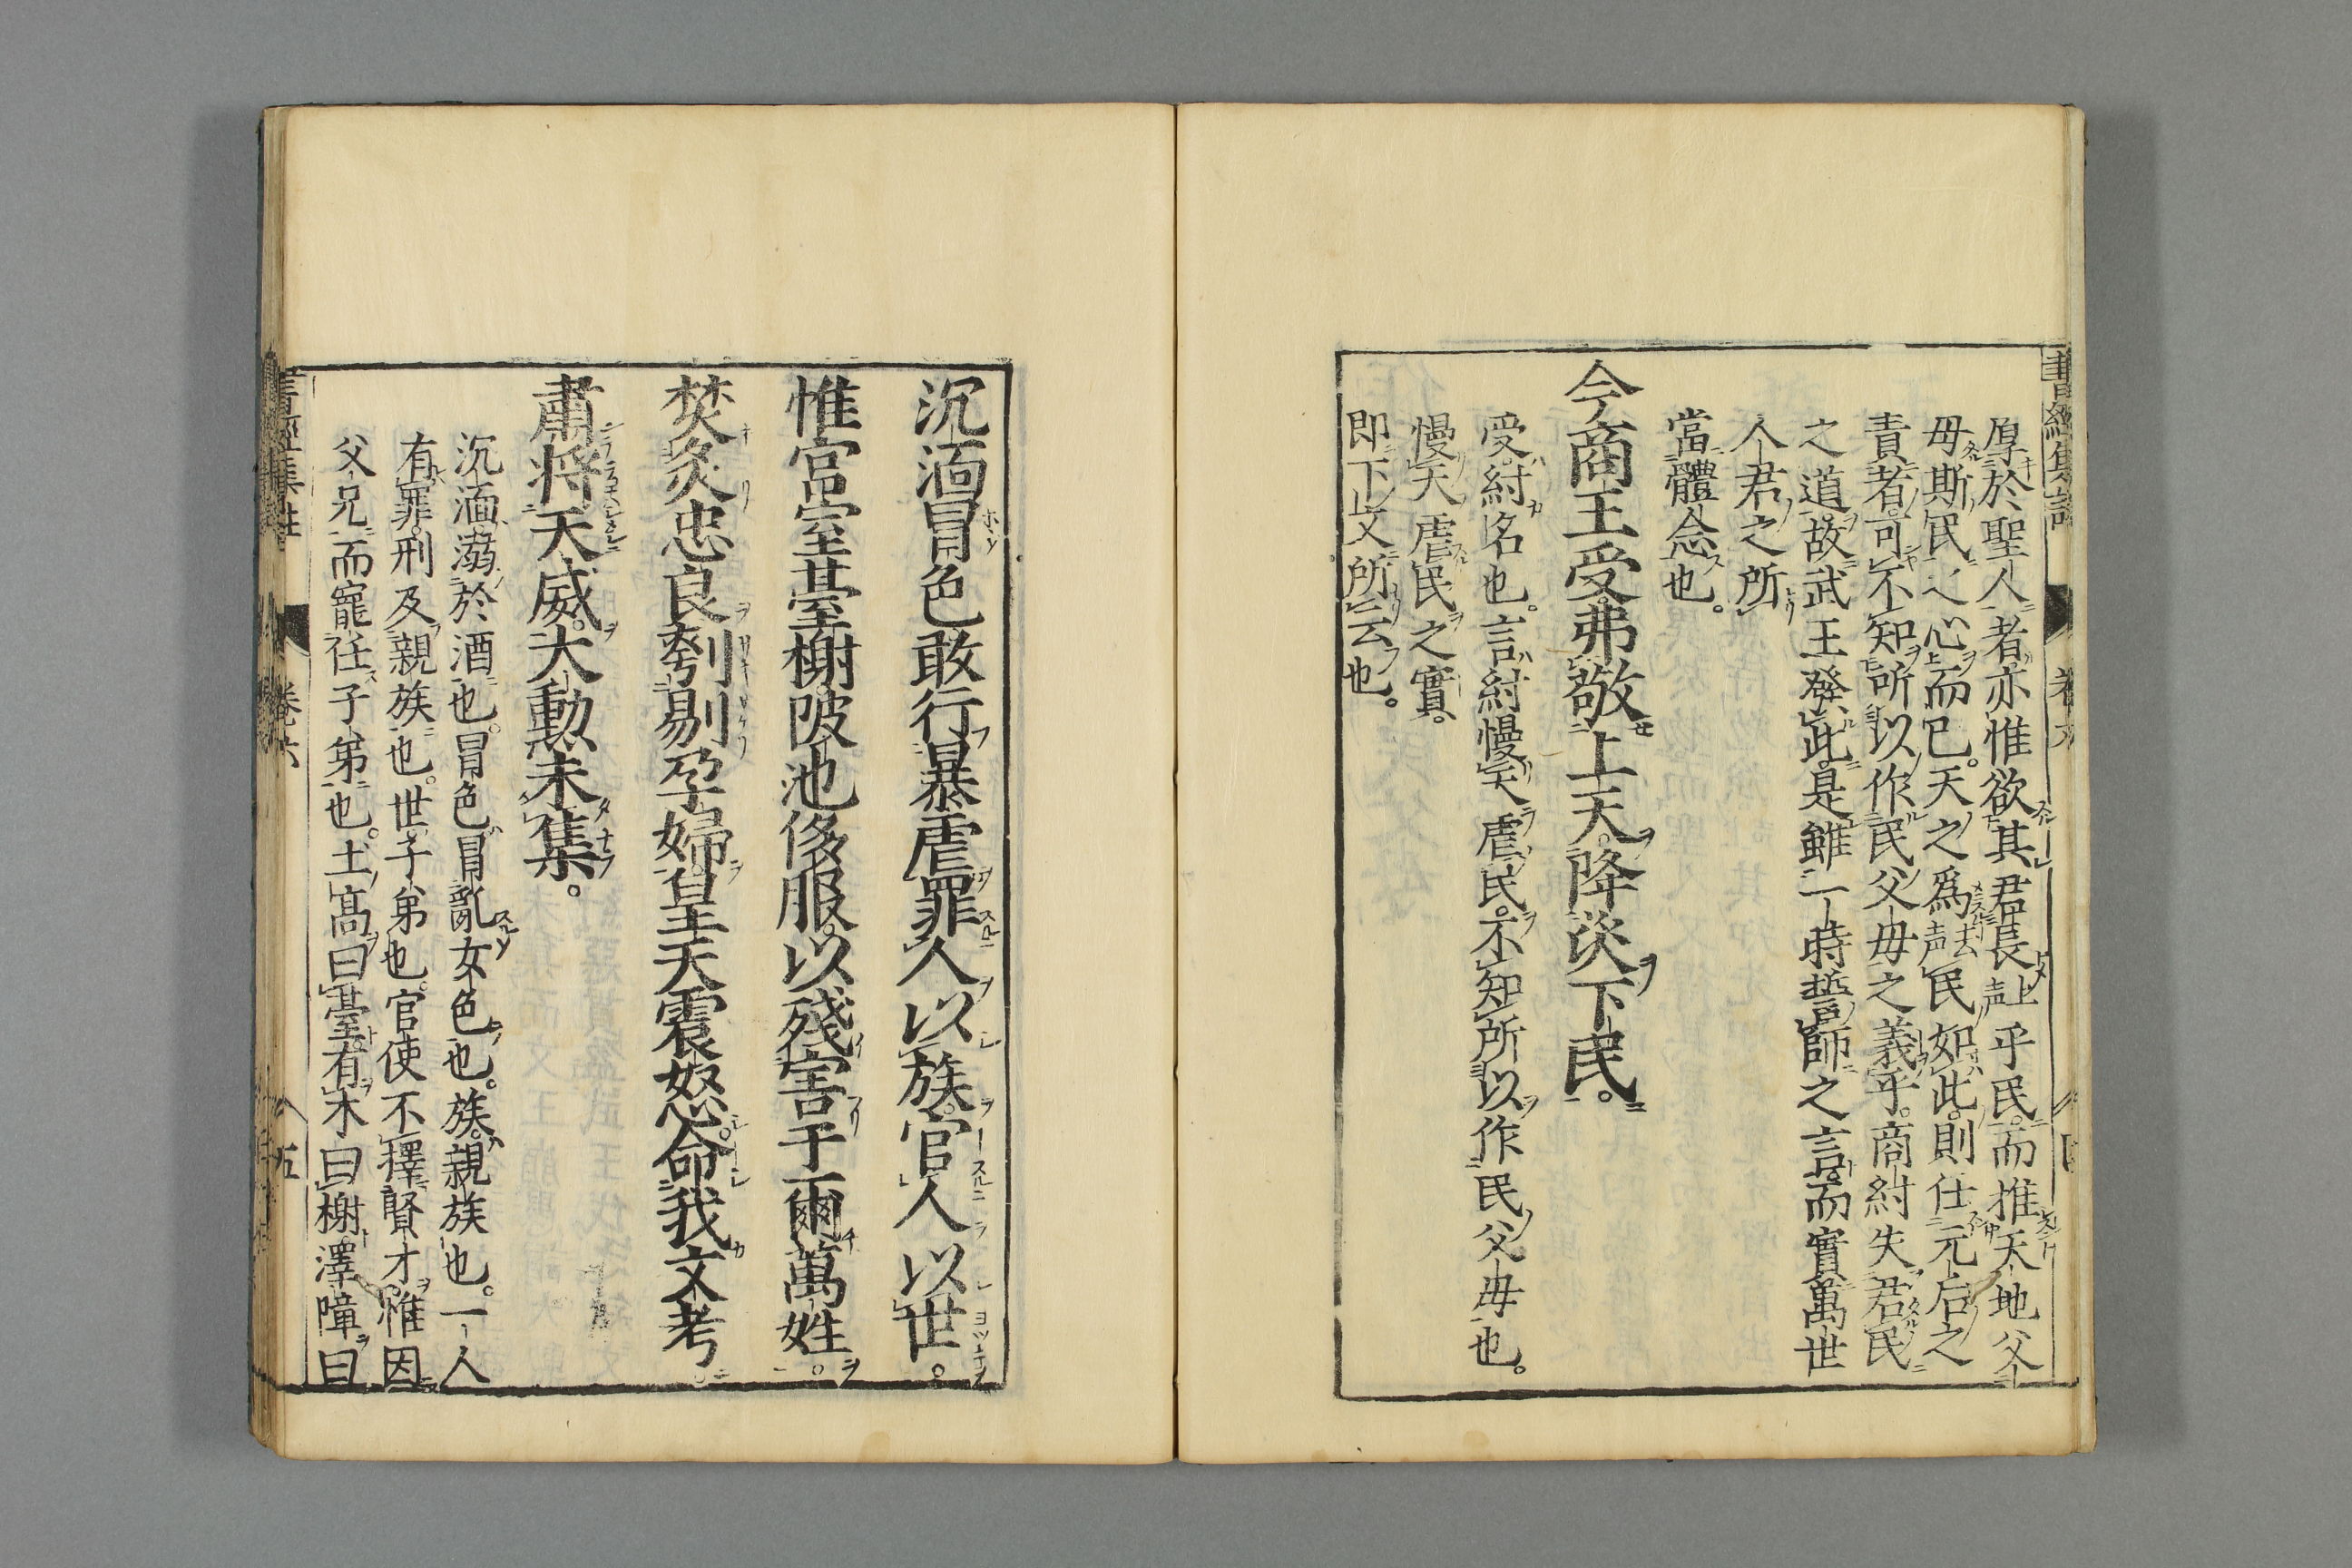 厚於聖人者亦惟欲其君長上声乎民而推天地父
母斯民之心而已天之爲去声民如此則任元后之
責者可不知所以作民父母之義乎商紂失君民
之道故武王發此是雖一時誓師之言而實萬世
人君之所
當體念也。
今商王受弗敬上天降災下民。
受紂名也。言紂慢天虐民不知所以作民父母也。
慢天虐民之實。
即下文所云也。
沉湎冒色敢行暴虐罪人以族官人以世。
惟宮室臺榭陂池侈服以殘害于爾萬姓。
焚炙忠良刳剔孕婦皇天震怒命我文考。
肅将天威大勳未集。
沉湎溺於酒也。冒色冒亂女色也。族親族也。一人
有罪刑及親族也。世子弟也官使不擇賢才惟因
父兄而寵任子弟也。土高曰臺有木曰榭澤障曰
書經集註 卷六 五